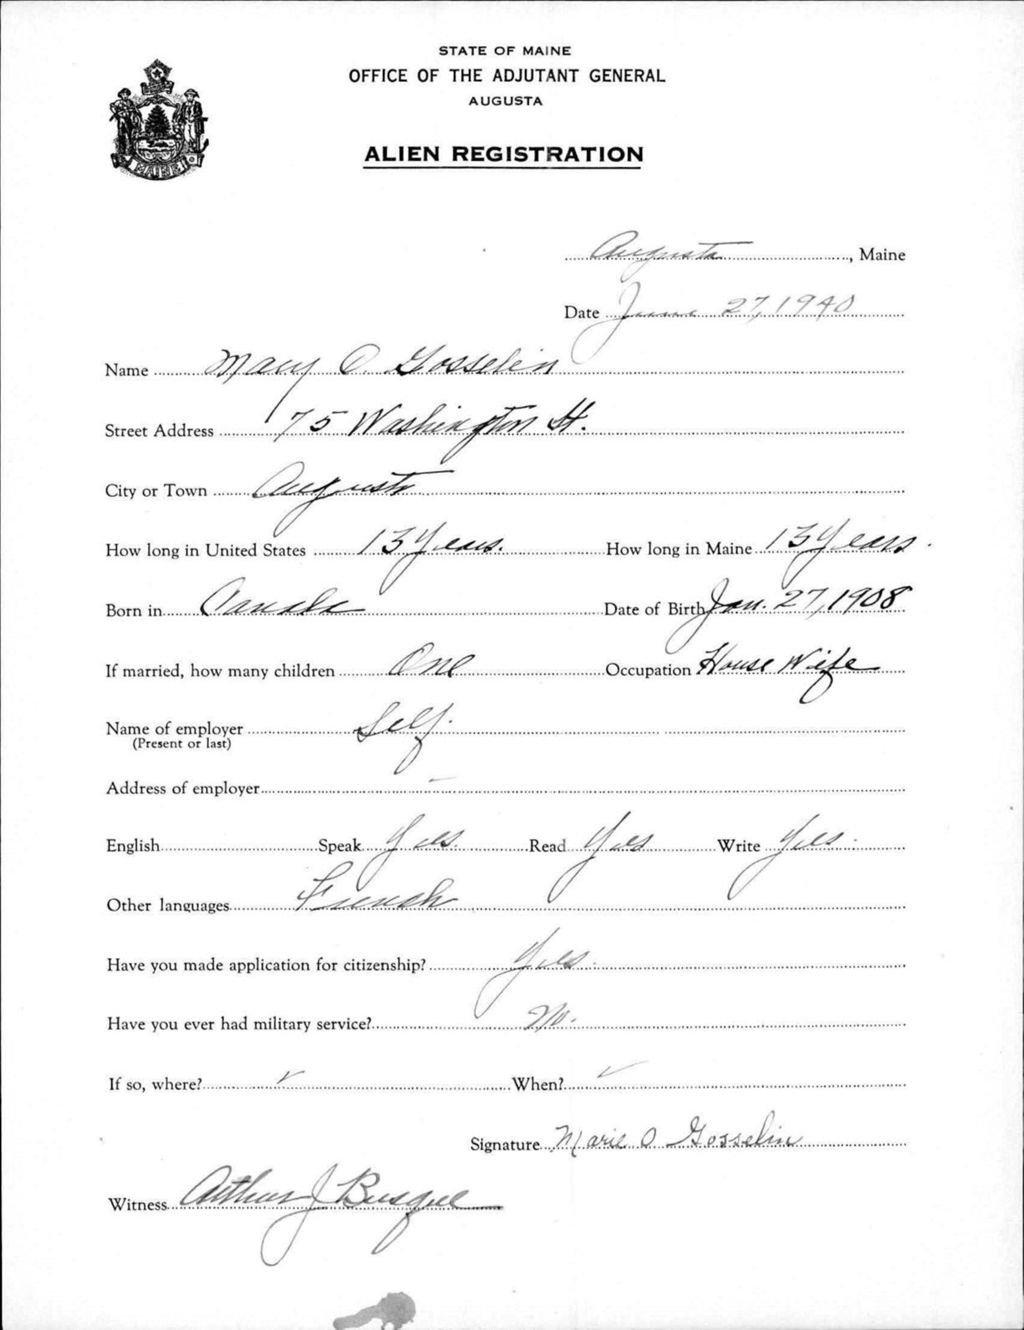 STATE OF MAINE
OFFICE OF THE ADJUTANT GENERAL
AUGUSTA
ALIEN REGISTRATION
MAINE
Augusta, Maine
Date June 27, 1940
Name Mary O. Gosselin
Street Address 75 Washington St.
City or Town Augusta
How long in United States 13 Years. How long in Maine 13 Years.
Born in Canada Date of Birth Jan. 27, 1908
If married, how many children One Occupation House Wife
Name of employer Self.
(Present or last)
Address of employer –
English Speak Yes. Read Yes Write Yes.
Other languages French
Have you made application for citizenship? Yes.
Have you ever had military service? No.
If so, where? ✓ When? ✓
Signature Marie O Gosselin
Witness Arthur J Busque